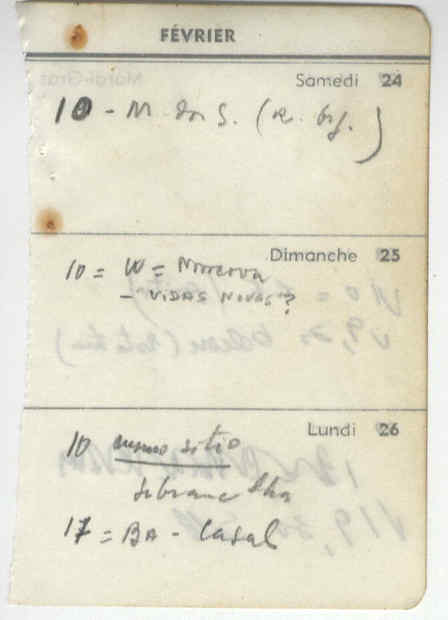 FÉVRIER
Samedi 24
10 - M. dos S. (R.
Dimanche 25
10 = W = Minerva
- VIDAS NOVAS?
Lundi 26
10 mesmo sitio
17 = BA - Casal